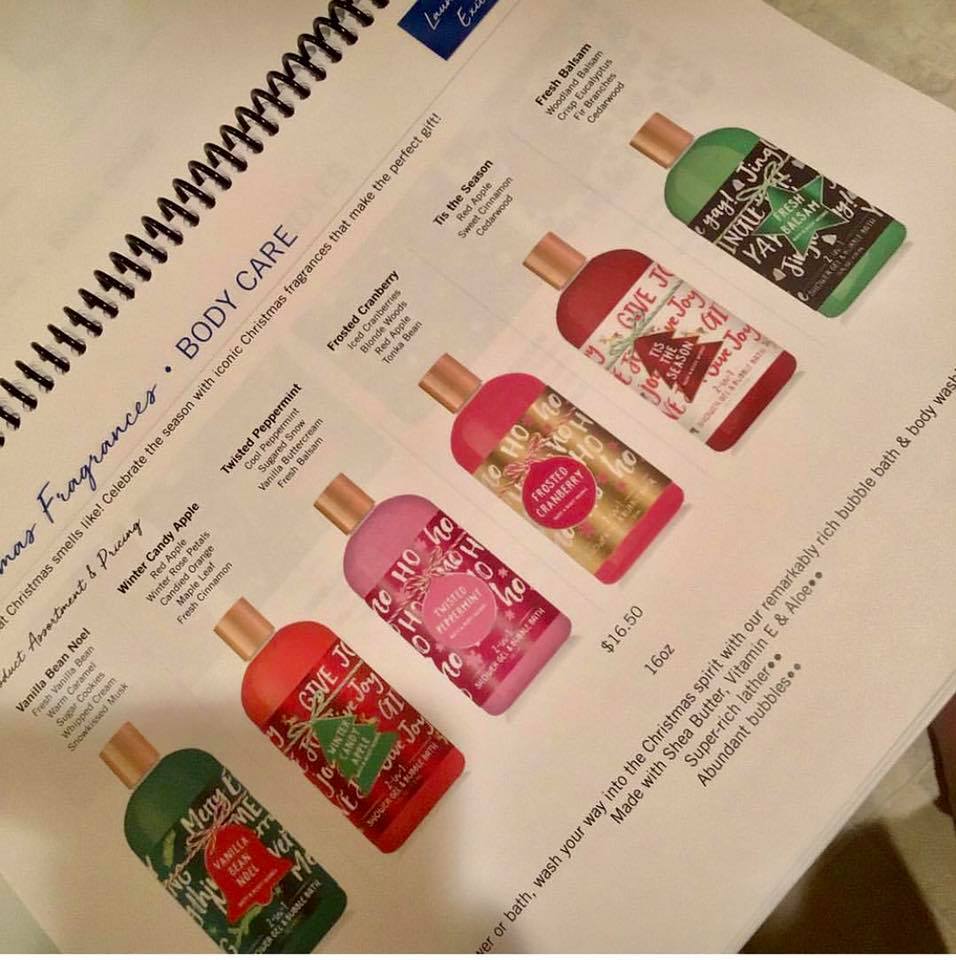 mas Fragrances • BODY CARE
at Christmas smells like! Celebrate the season with iconic Christmas fragrances that make the perfect gift!
Assortment & Pricing
Vanilla Bean Noel
Fresh Vanilla Bean
Warm Caramel
Sugar Cookies
Whipped Cream
Snowkissed Musk
Winter Candy Apple
Red Apple
Winter Rose Petals
Candied Orange
Maple Leaf
Fresh Cinnamon
Twisted Peppermint
Cool Peppermint
Sugared Snow
Vanilla Buttercream
Fresh Balsam
Frosted Cranberry
Iced Cranberries
Blonde Woods
Red Apple
Tonka Bean
Tis the Season
Red Apple
Sweet Cinnamon
Cedarwood
Fresh Balsam
Woodland Balsam
Crisp Eucalyptus
Fir Branches
Cedarwood
VANILLA
BEAN
NOEL
2-in-1
SHOWER GEL & BUBBLE BATH
WINTER
CANDY
APPLE
2-in-1
SHOWER GEL & BUBBLE BATH
TWISTED
PEPPERMINT
2-in-1
SHOWER GEL & BUBBLE BATH
FROSTED
CRANBERRY
TIS
THE
SEASON
2-in-1
SHOWER GEL & BUBBLE BATH
FRESH
BALSAM
2-in-1
SHOWER GEL & BUBBLE BATH
$16.50
16oz
wer or bath, wash your way into the Christmas spirit with our remarkably rich bubble bath & body wash
Made with Shea Butter, Vitamin E & Aloe••
Super-rich lather••
Abundant bubbles••